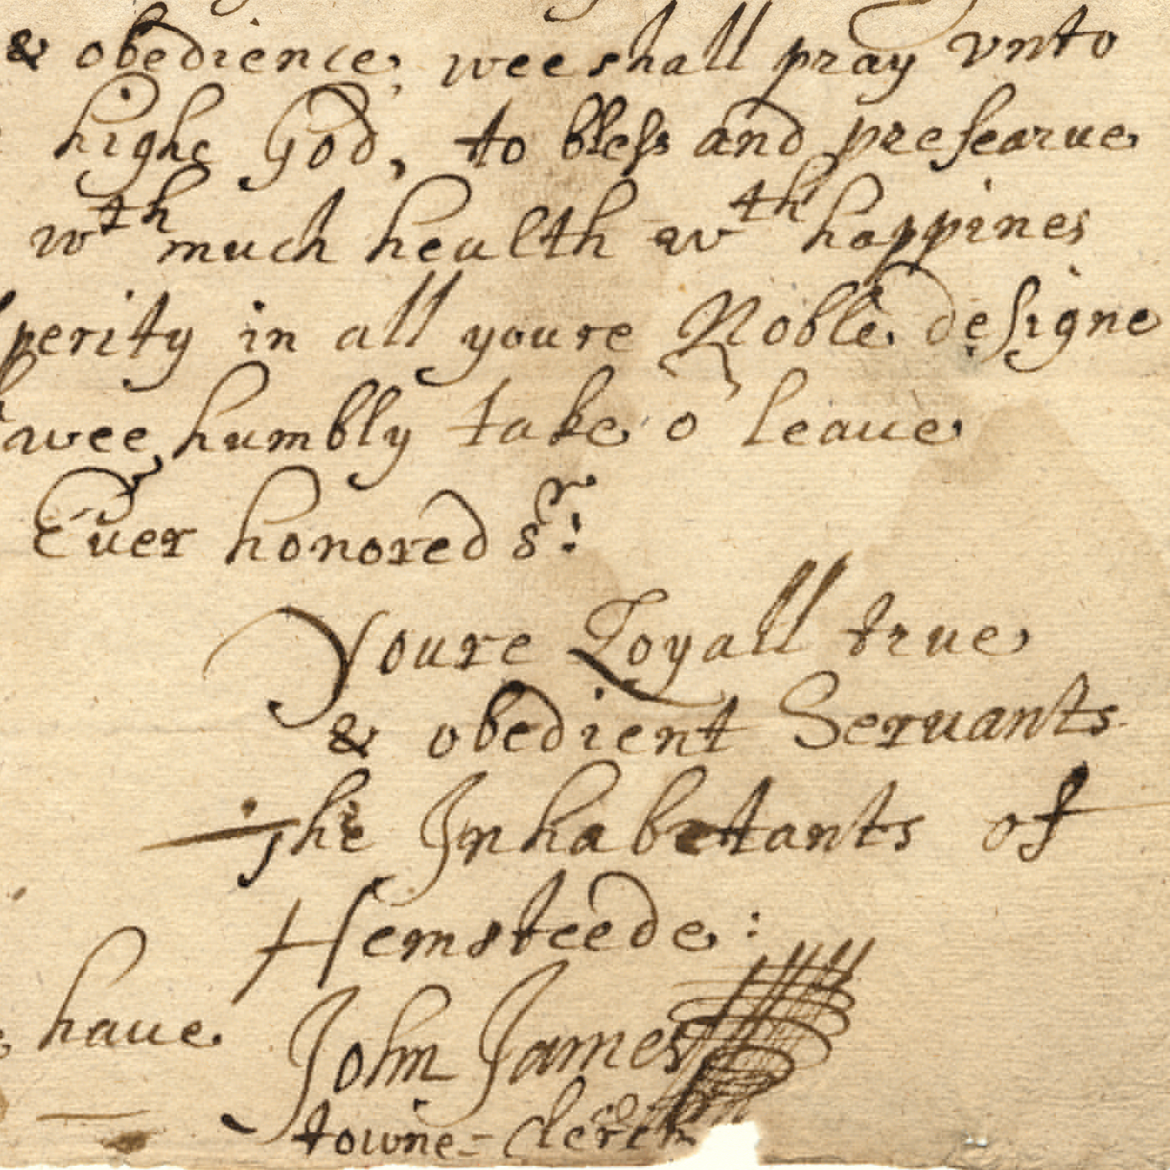 & obedience, wee shall pray vnto
highe God, to bless and presearue
wth much health & wth happines
perity in all youre Noble designe
wee humbly take or leaue
Euer honored Sr:
Youre Loyall true
& obedient Seruants
The Inhabetants of
Hemsteede:
haue John James
towne-clerck